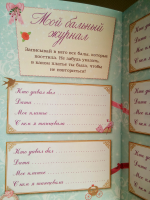 Мой бальный
журнал
Записывай в него все балы, которые
посетила. Не забудь указать,
в каком платье ты была, чтобы
не повториться!
Кто давал бал
Дата
Мое платье
С кем я танцевала
Кто давал бал
Дата
Мое платье
С кем я танцевала